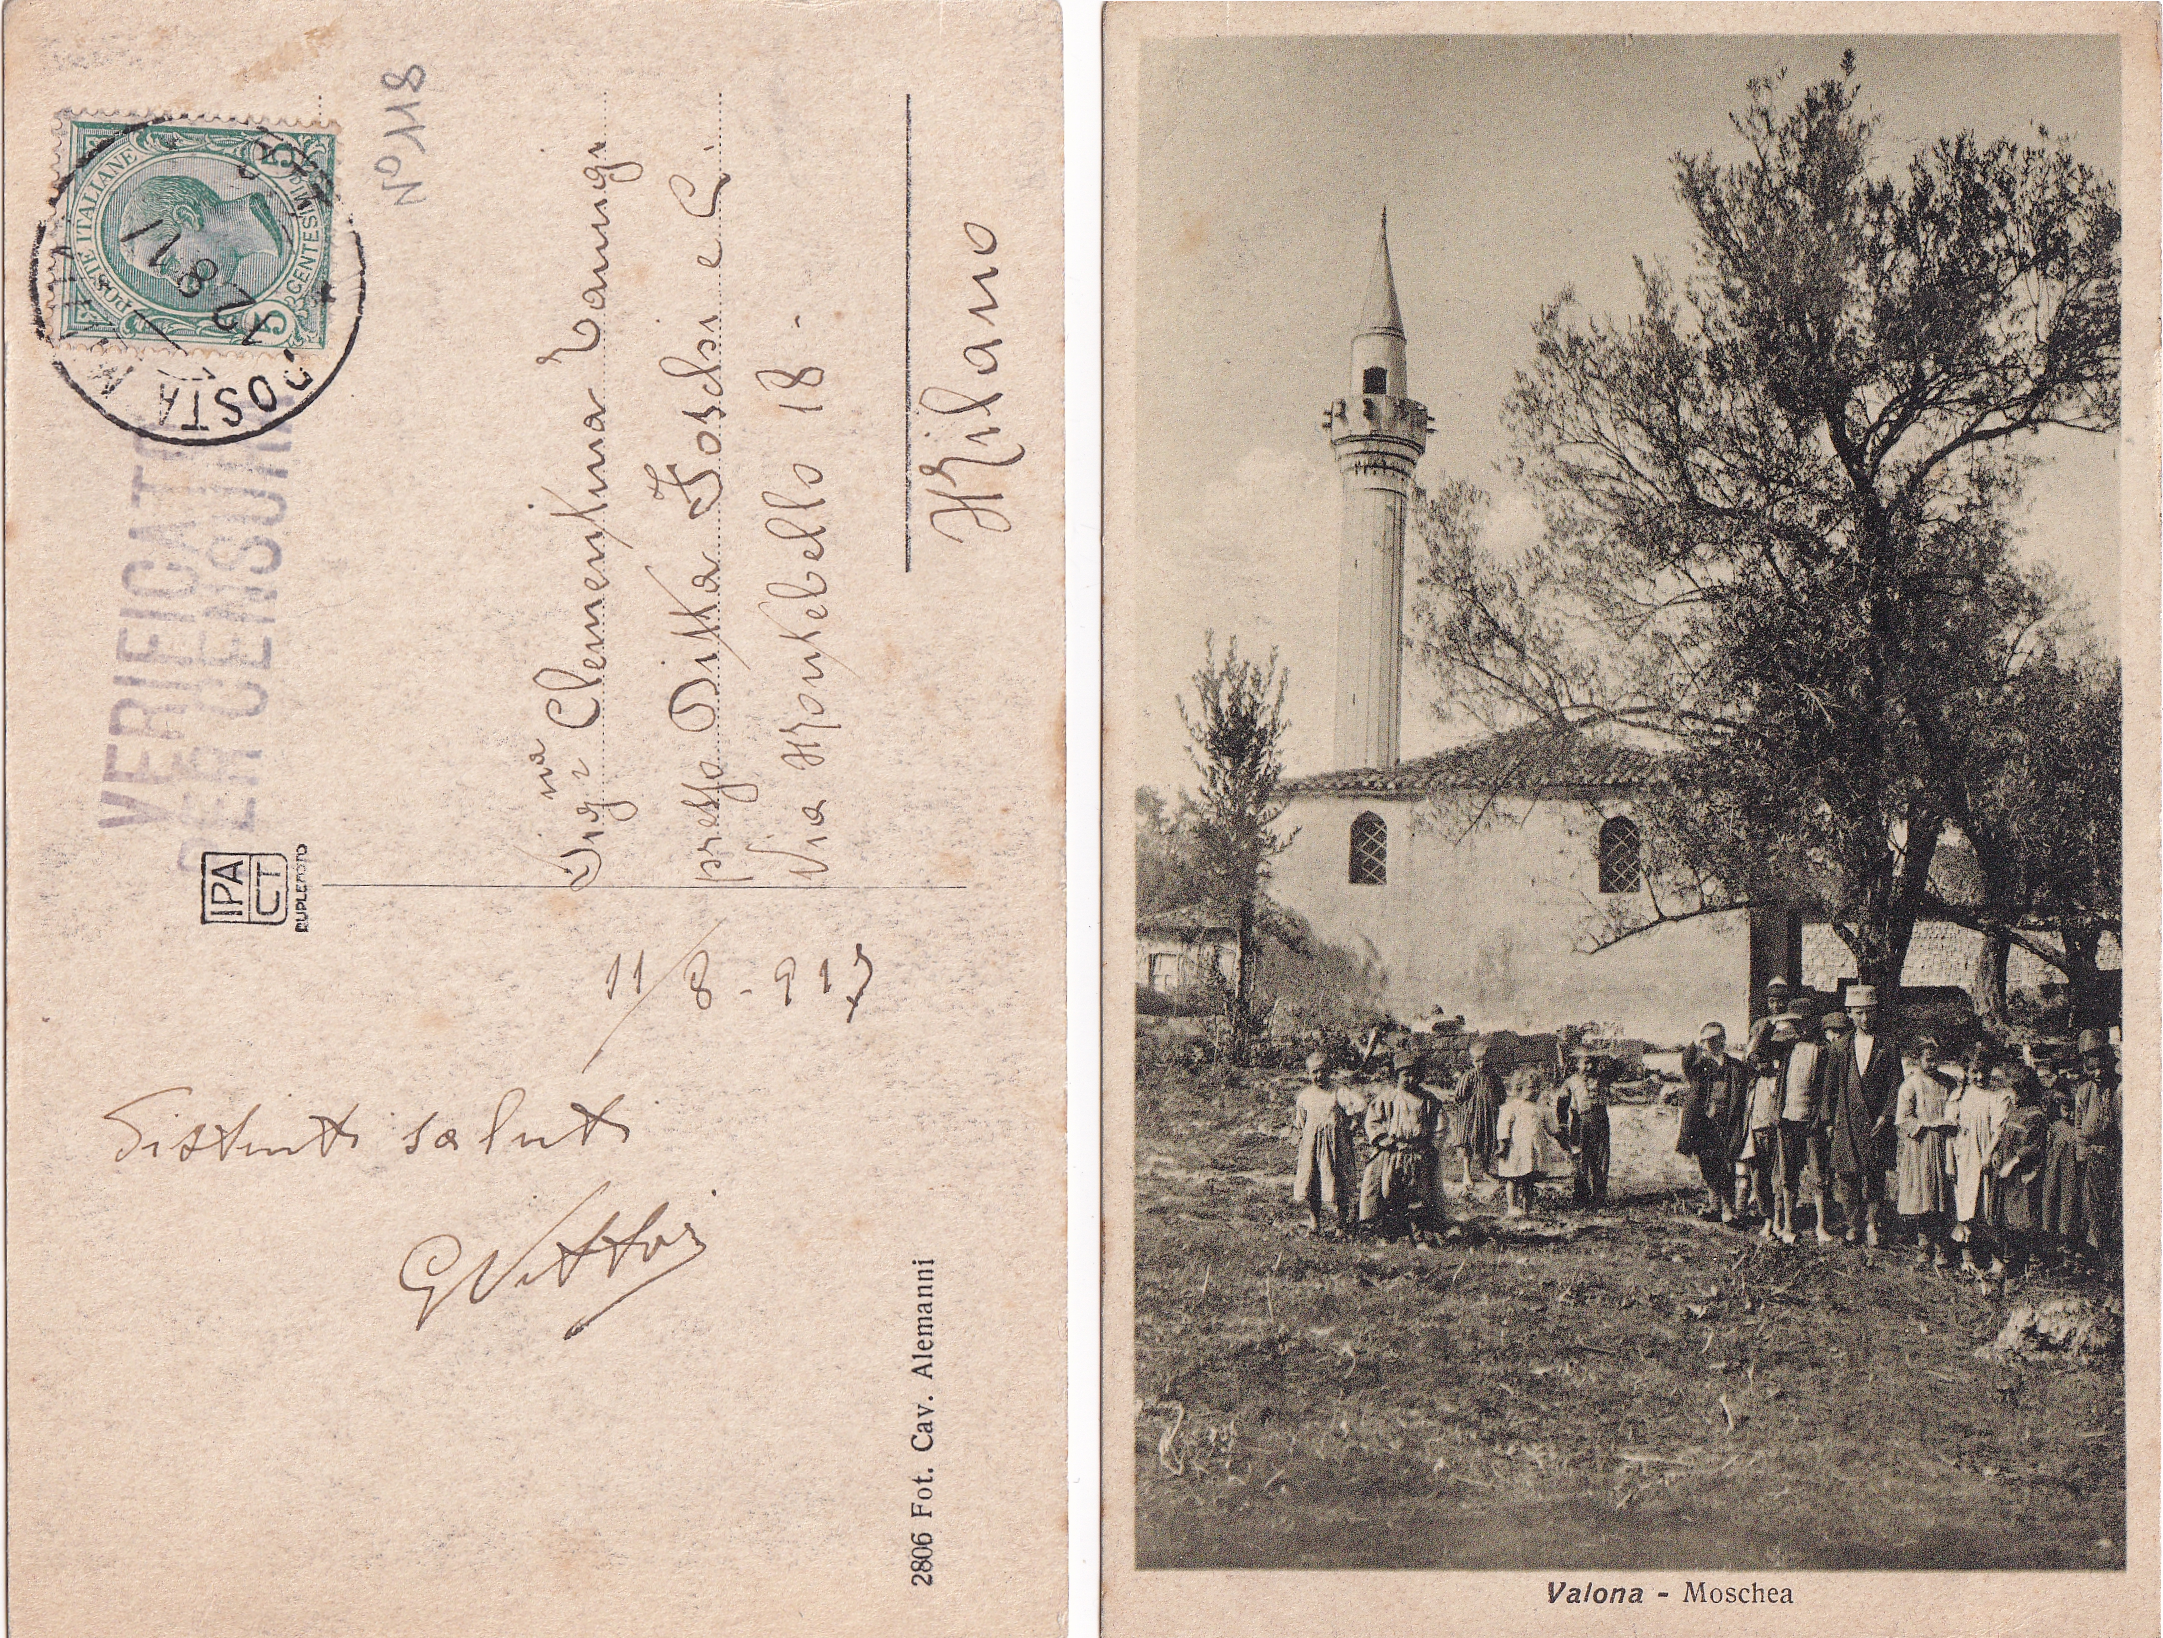 POSTE ITALIANE
5 CENTESIMI 5
POSTA MILITARE
12 8 17
VERIFICATO
PER CENSURA
No 118
IPA
CT
DUPLEFOTO
Sig.na Clementina
presso Ditta Foschi e C.
Via Montebello 18-
Milano
11/8-917
Distinti saluti
GVittori
2806 Fot. Cav. Alemanni
Valona - Moschea